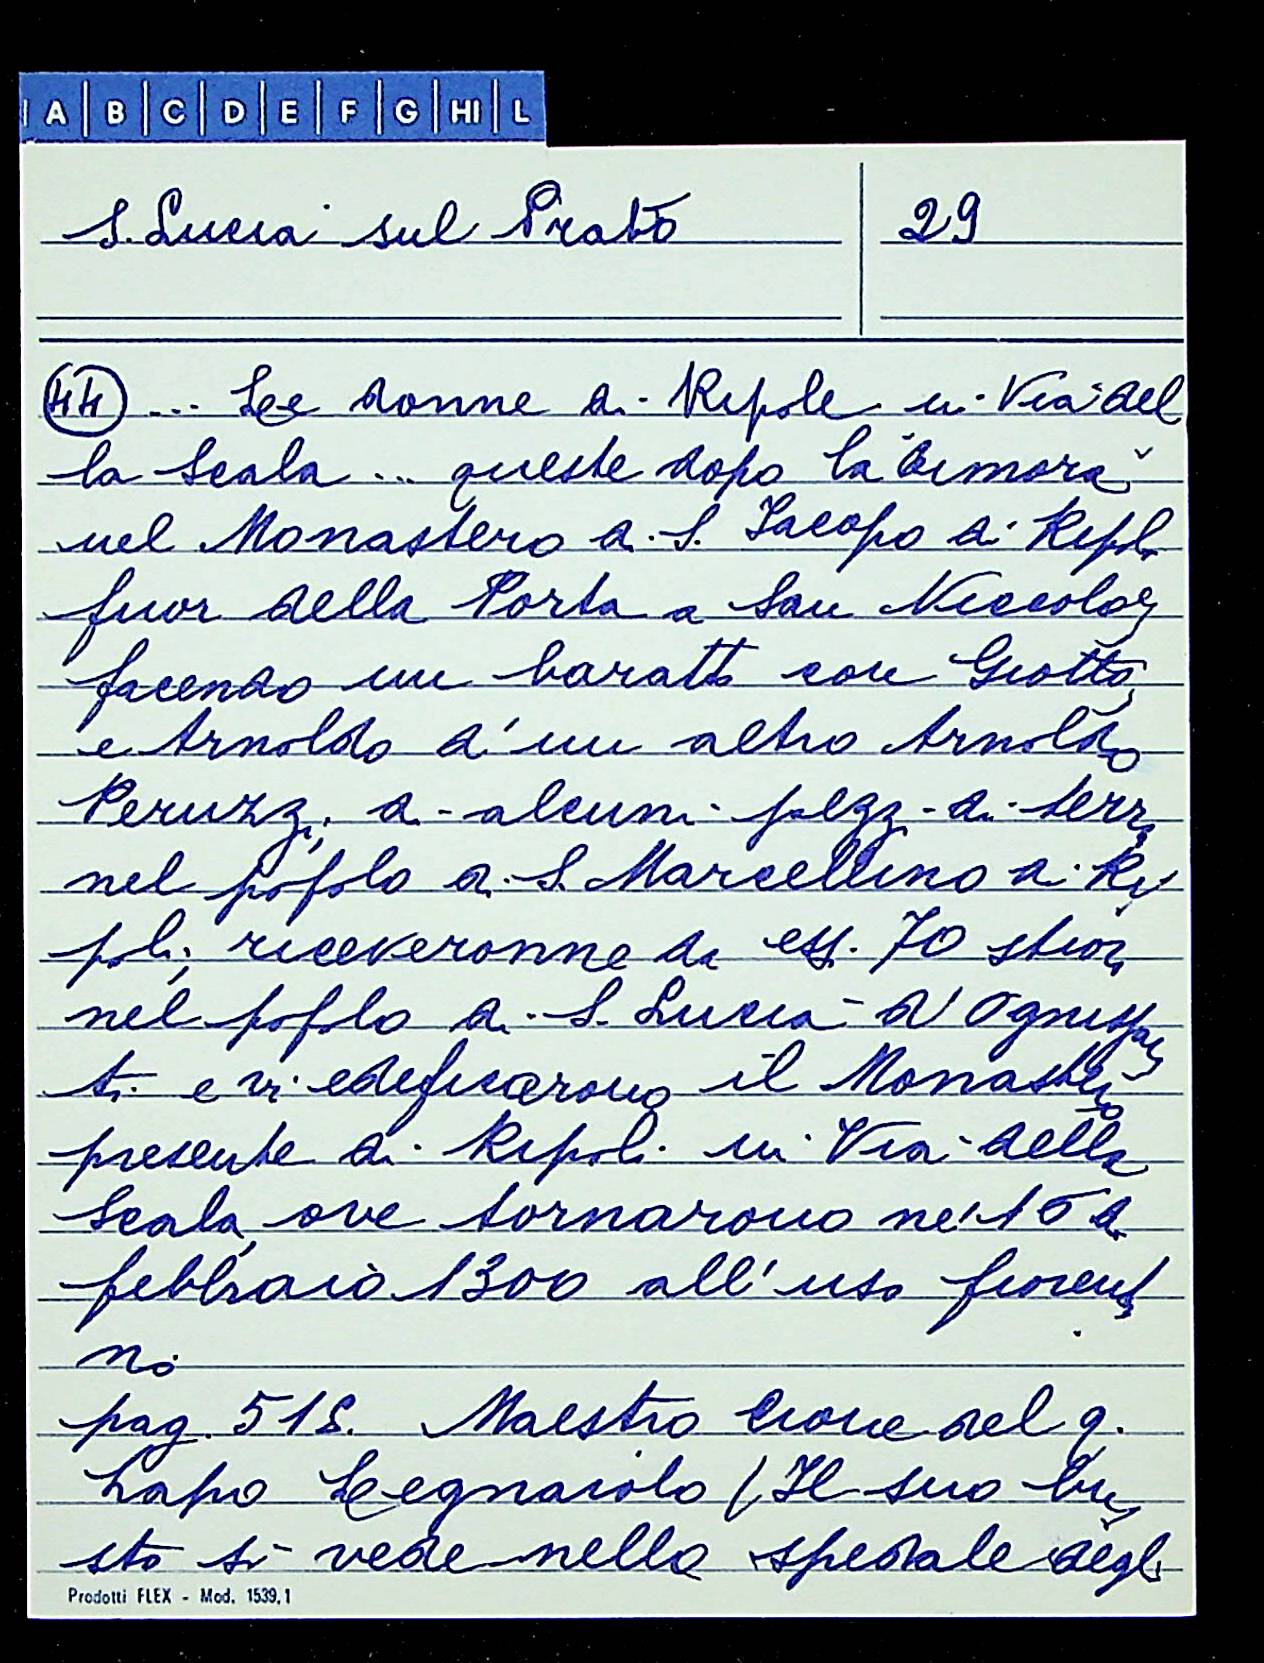 A B C D E F G HI L
S. Lucia sul Prato 29
(44) ... Le donne di Ripole in Via del
la Scala ... queste dopo la dimora
nel Monastero di S. Jacopo di Ripoli
fuor della Porta a San Niccolò,
facendo un baratto con Giotto,
e Arnoldo d'un altro Arnoldo
Peruzzi, di alcuni pezzi di terra
nel popolo di S. Marcellino a Ri
poli, riceveronne da essi 70 stiora
nel popolo di S. Lucia d'Ognissan
ti e vi edeficarono il Monastero
presente di Ripoli in Via della
Scala, ove tornarono ne' 15 di
febbraio 1300 all'uso fiorenti
no
pag. 518. Maestro Cione del q.
Lapo Legnaiolo (Il suo bu
sto si vede nello spedale degli
Prodotti FLEX - Mod. 1539,1